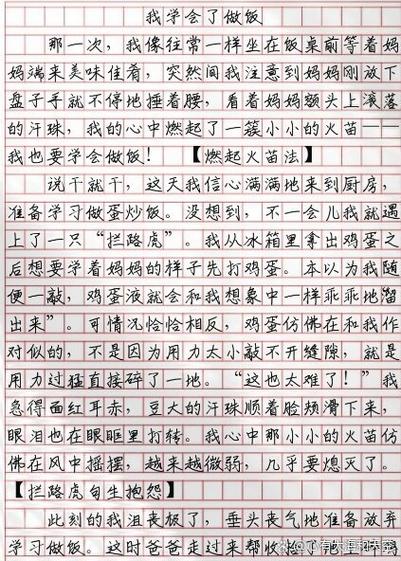 我学会了做饭
那一次，我像往常一样坐在饭桌前等着妈
妈端来美味佳肴，突然间我注意到妈妈刚放下
盘子手就不停地捶着腰，看着妈妈额头上滚落
的汗珠，我的心中燃起了一簇小小的火苗——
我也要学会做饭！ 【燃起火苗法】
说干就干，这天我信心满满地来到厨房，
准备学习做蛋炒饭。没想到，不一会儿我就遇
上了一只“拦路虎”。我从冰箱里拿出鸡蛋之
后想要学着妈妈的样子先打鸡蛋。本以为我随
便一敲，鸡蛋液就会和我想象中一样乖乖地溜
出来”。可情况恰恰相反，鸡蛋仿佛在和我作
对似的，不是因为用力太小敲不开缝隙，就是
用力过猛直接碎了一地。“这也太难了！”我
急得面红耳赤，豆大的汗珠顺着脸颊滑下来，
眼泪也在眼眶里打转。我心中那小小的火苗仿
佛在风中摇摆，越来越微弱，几乎要熄灭了。
【拦路虎旬生抱怨】
此刻的我沮丧极了，垂头丧气地准备放弃
学习做饭。这时爸爸走过来帮收拾了